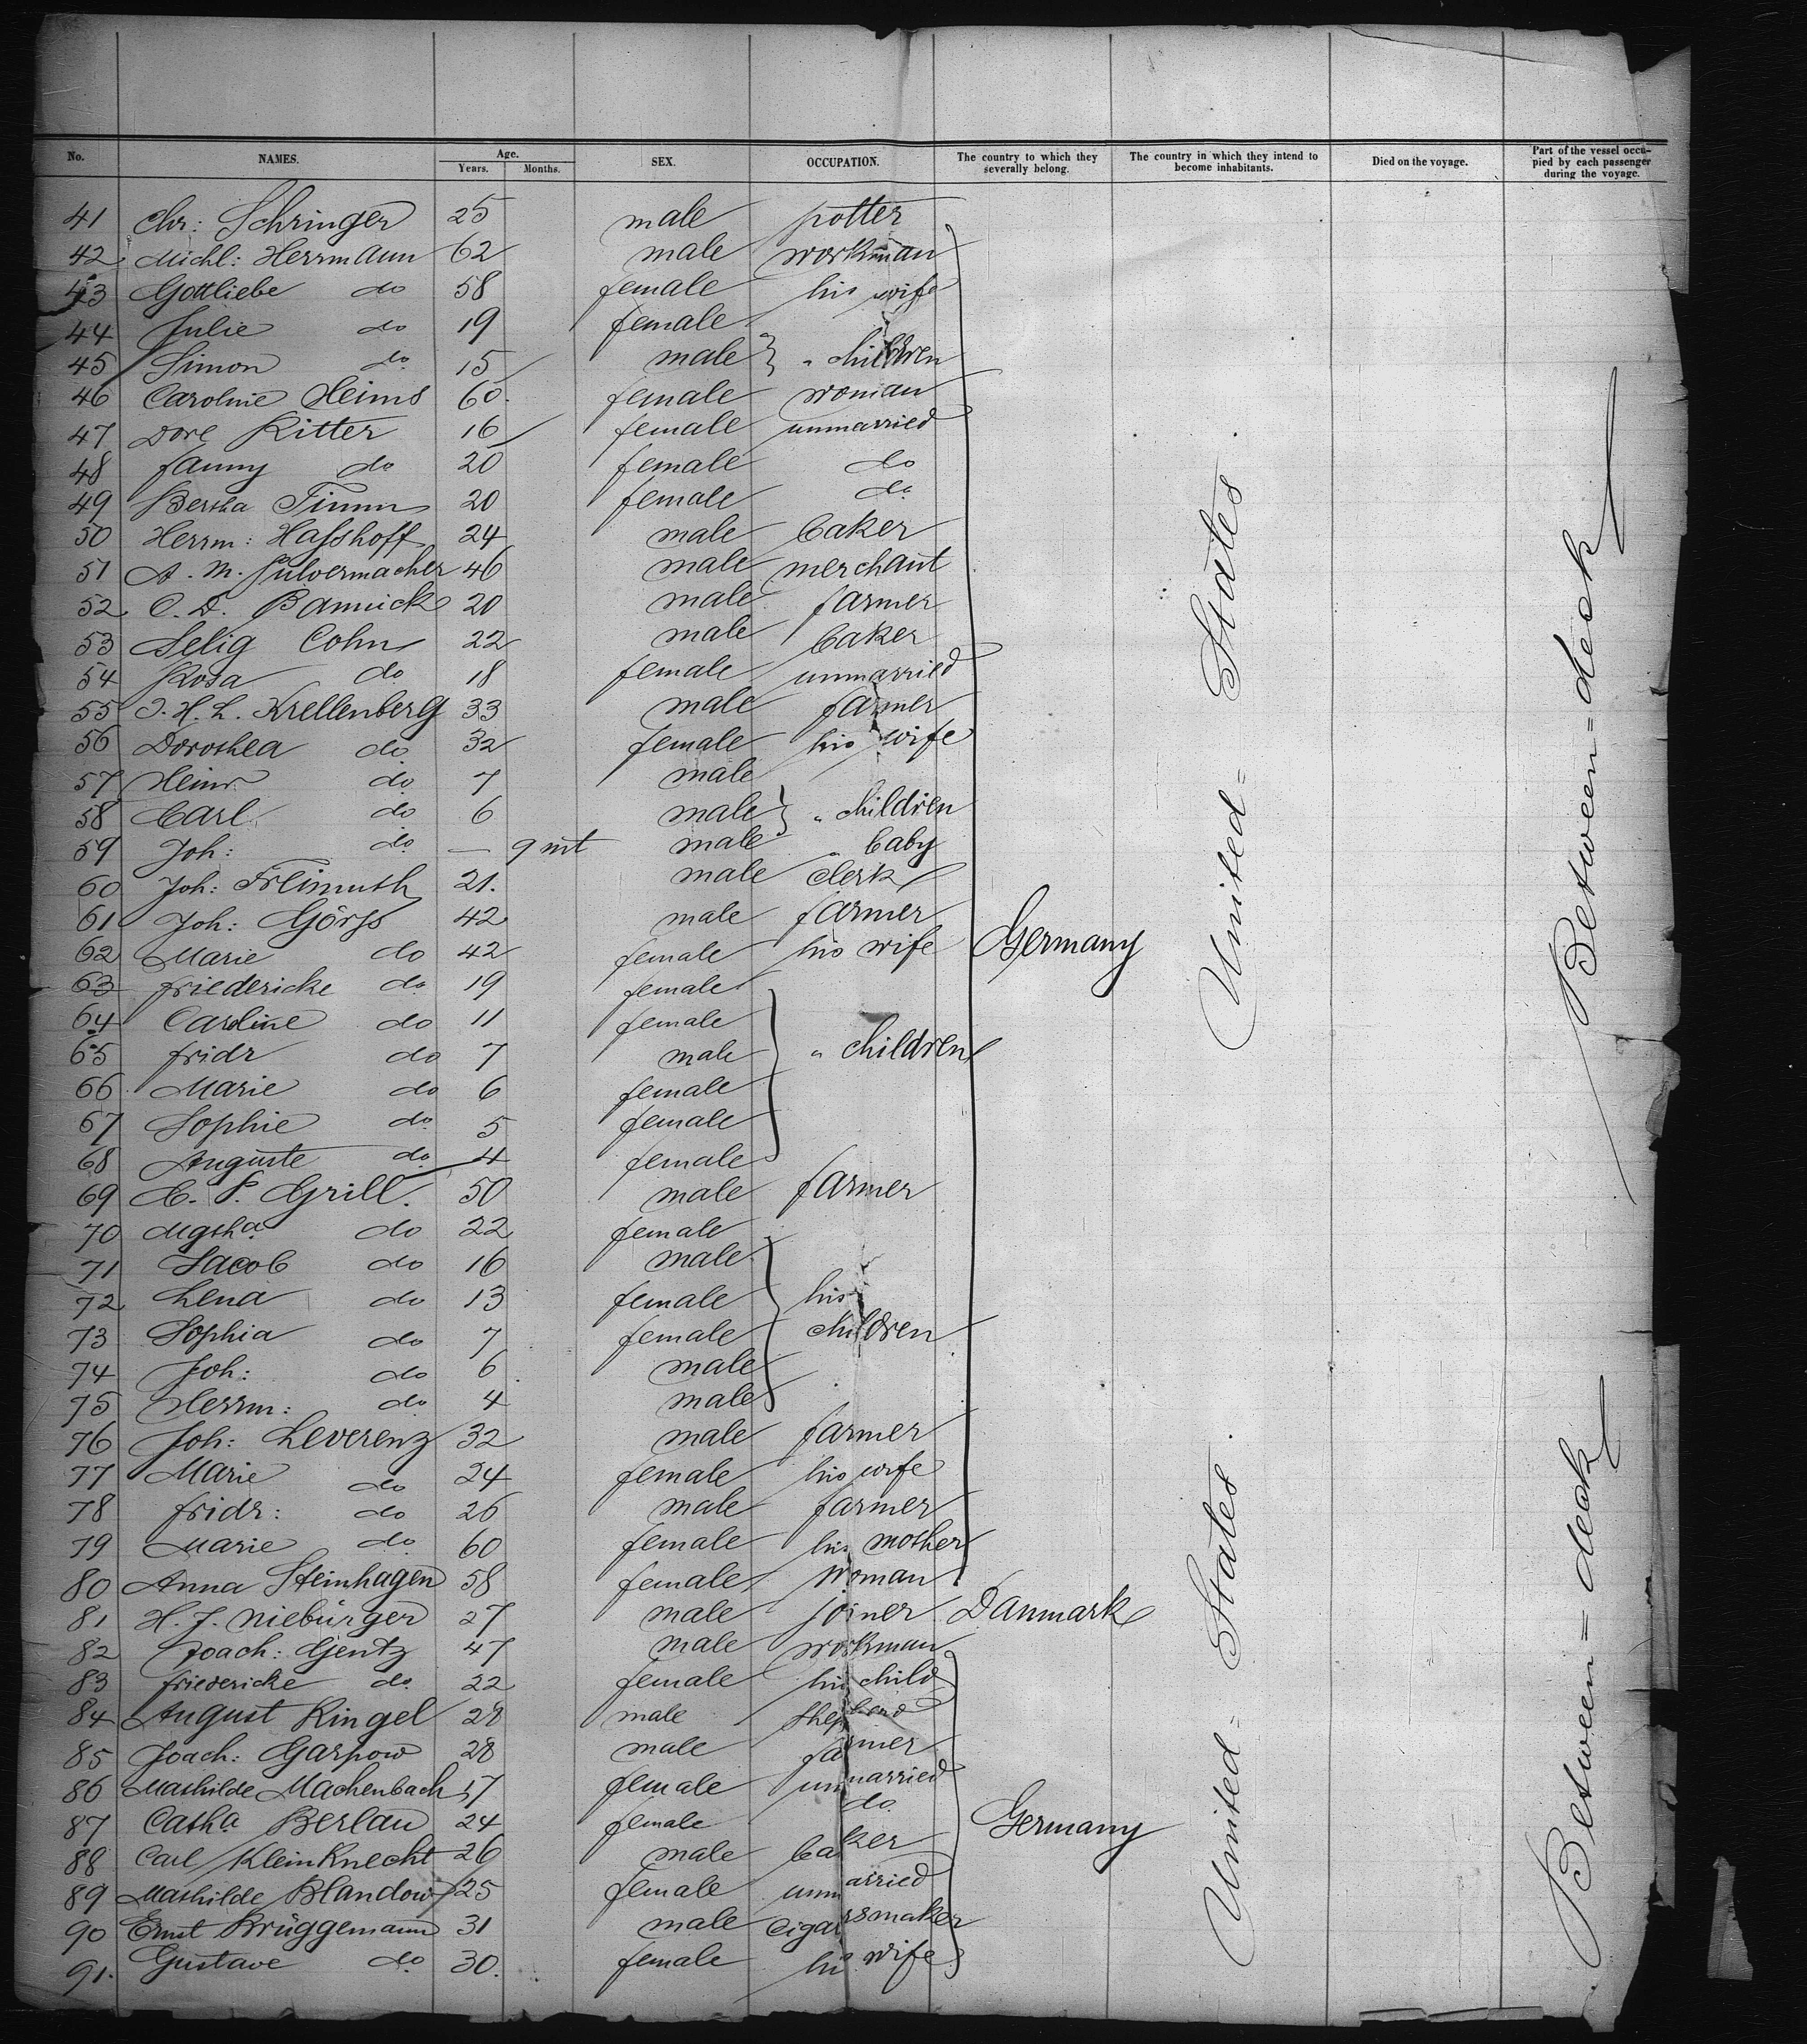 No. NAMES. Age. Years. Months. SEX. OCCUPATION. The country to which they severally belong. The country in which they intend to become inhabitants. Died on the voyage. Part of the vessel occupied by each passenger during the voyage.
41 Chr: Schringer 25 male potter
42 Michl: Herrmann 62 male workman
43 Gottliebe do 58 female his wife
44 Julie do 19 female
45 Simon do 15 male " children
46 Caroline Heims 60. female woman
47 Dore Ritter 16 female unmarried
48 Fanny do 20 female do
49 Bertha Timm 20 female do
50 Herrm: Hasshoff 24 male baker
51 A. M. Pulvermacher 46 male merchant
52 C. D. Bannick 20 male farmer
53 Selig Cohn 22 male baker
54 Rosa do 18 female unmarried
55 J. H. L. Krellenberg 33 male farmer
56 Dorothea do 32 female his wife
57 Heinr. do 7 male
58 Carl do 6 male " children
59 Joh: do — 9 mt male " baby
60 Joh: Freimuth 21. male clerk
61 Joh: Görss 42 male farmer
62 Marie do 42 female his wife Germany United= States. Between=deck
63 Friedericke do 19 female
64 Caroline do 11 female
65 Fridr do 7 male " children
66 Marie do 6 female
67 Sophie do 5 female
68 Auguste do 4 female
69 C. F. Grill. 50 male farmer
70 Mgtha do 22 female
71 Jacob do 16 male
72 Lena do 13 female his
73 Sophia do 7 female children
74 Joh: do 6 male
75 Herrm: do 4 male
76 Joh: Leverenz 32 male farmer
77 Marie do 24 female his wife
78 Fridr: do 26 male farmer
79 Marie do 60 female his mother
80 Anna Steinhagen 58 female woman
81 H. J. Niebürger 27 male joiner Danmark
82 Joach: Gentz 47 male workman
83 Friedericke do 22 female his child
84 August Ringel 28 male shepherd
85 Joach: Garpow 28 male farmer
86 Mathilde Machenbach 17 female unmarried
87 Catha Berlau 24 female do Germany United= States. Between=deck
88 Carl Kleinknecht 26 male baker
89 Mathilde Blandow 25 female unmarried
90 Ernst Brüggemann 31 male cigarsmaker
91. Gustave do 30. female his wife